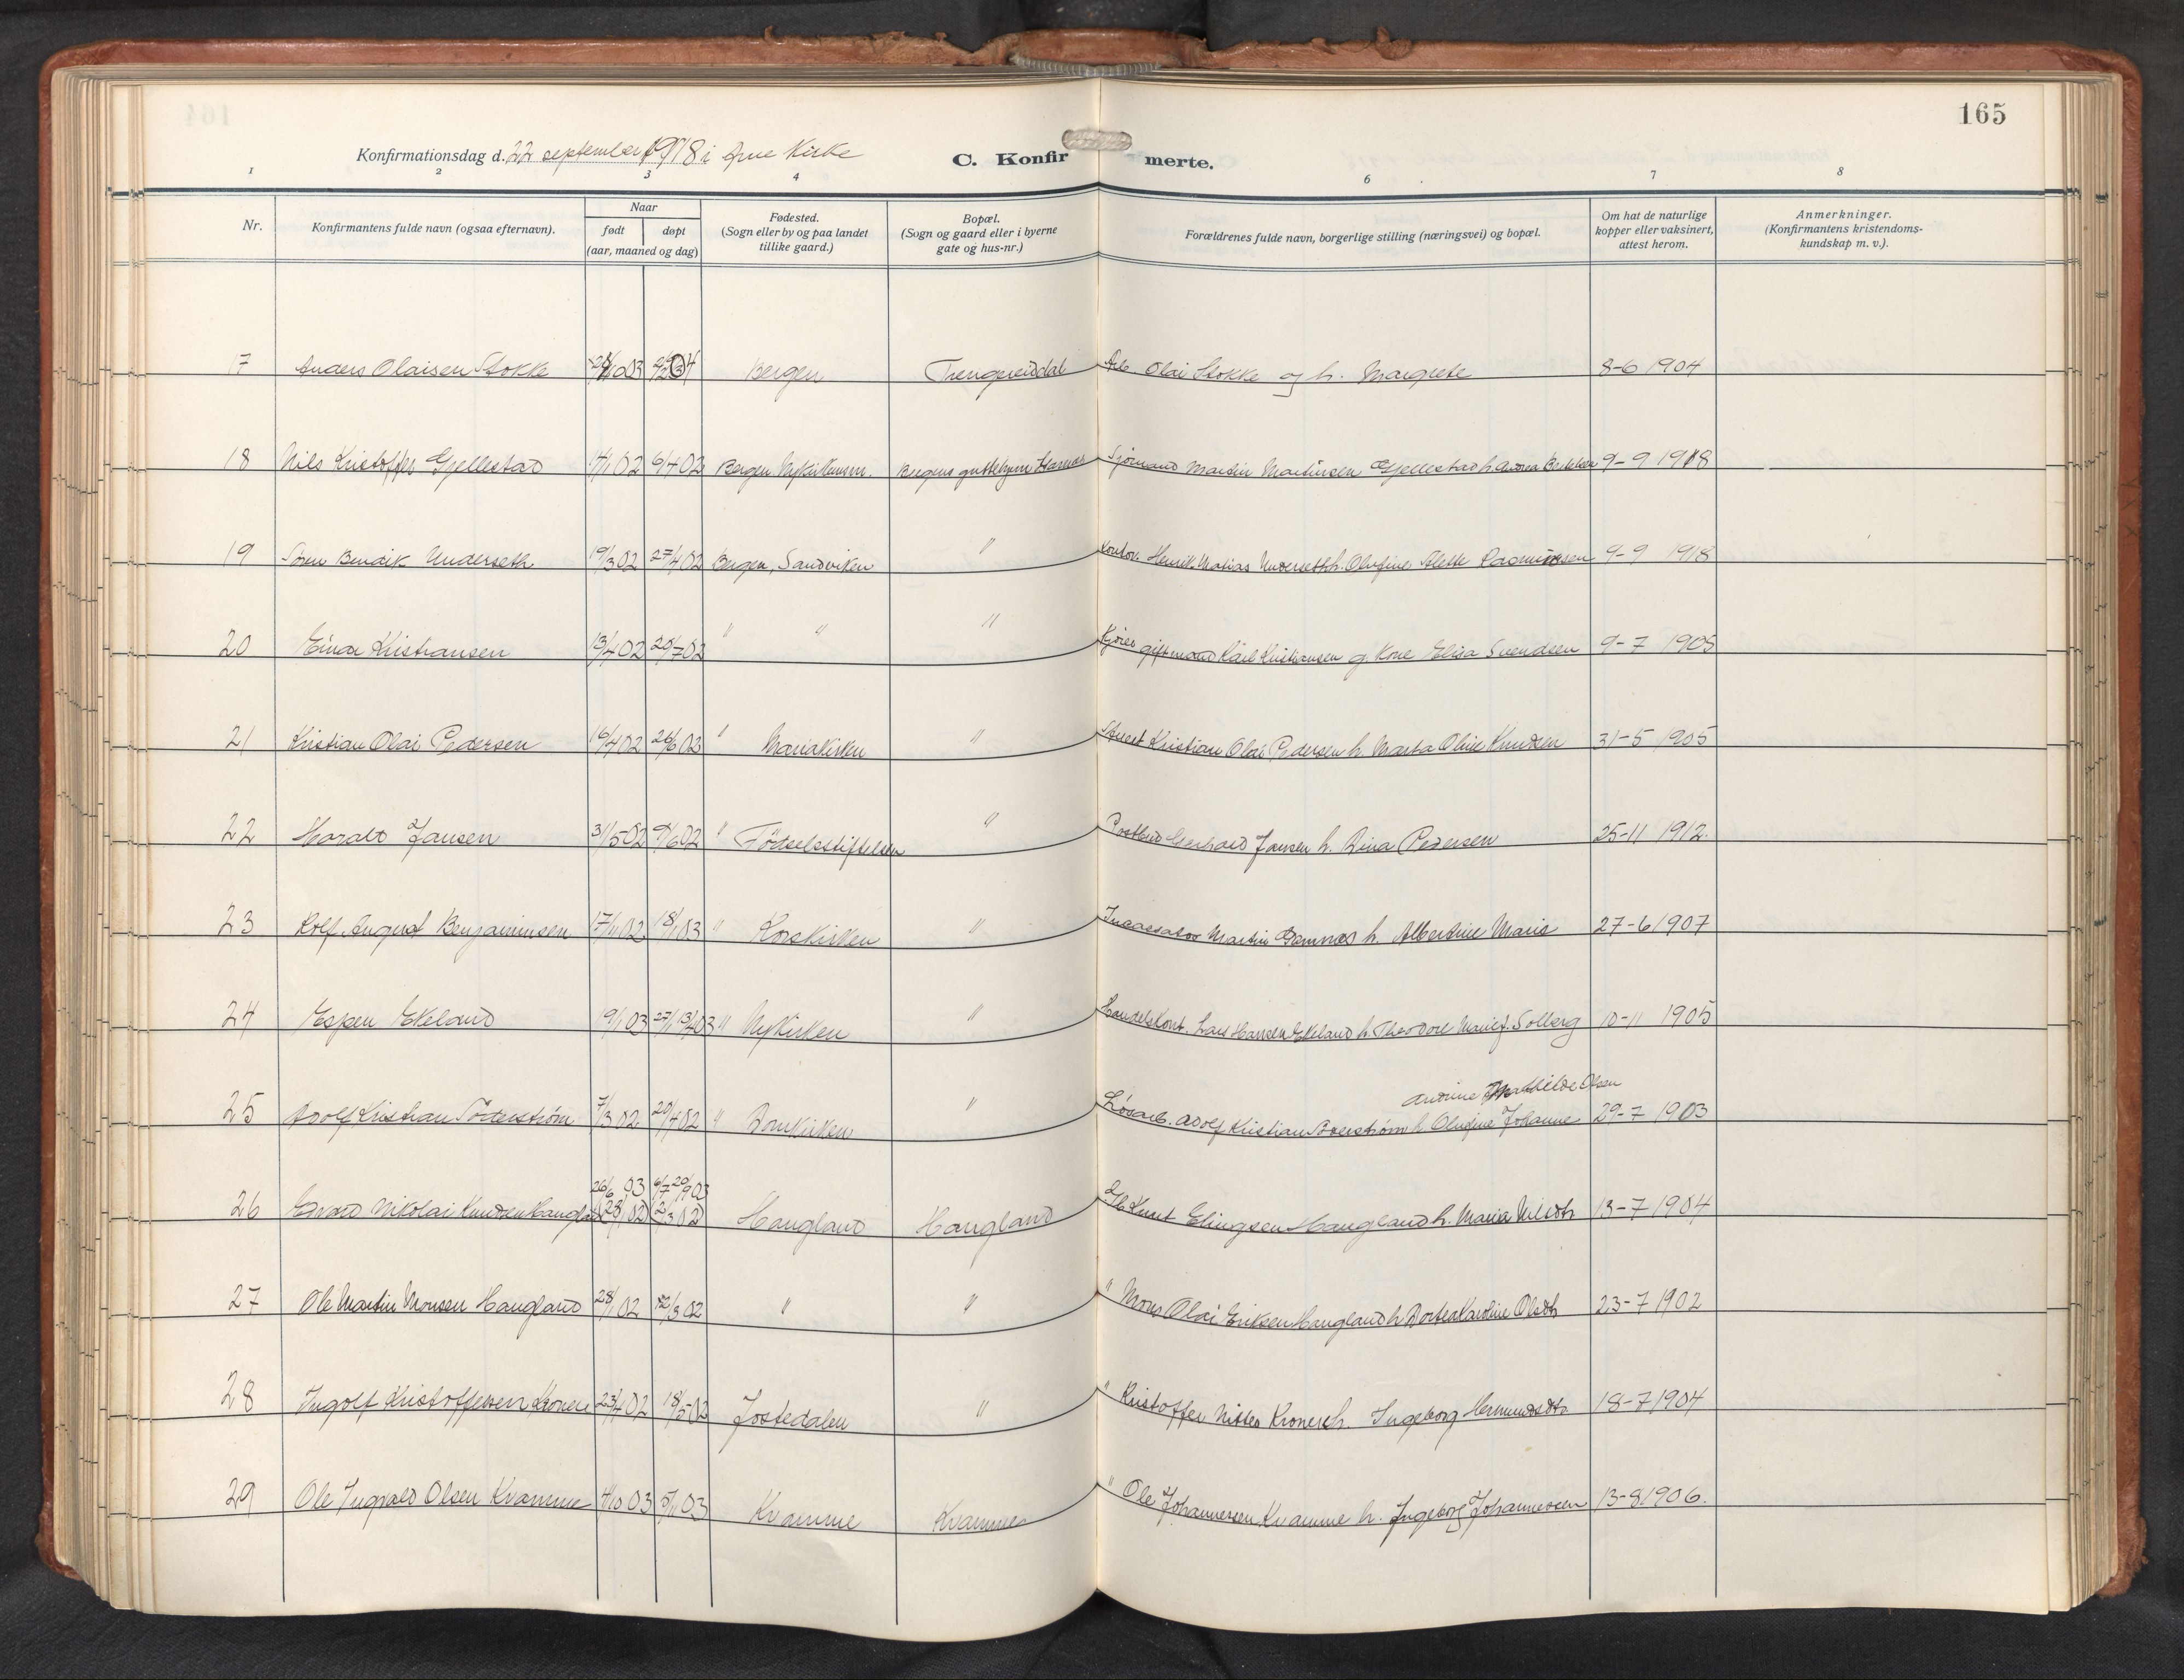 165
Konfirmationsdag d. 22 september 1918 i Arne Kirke
C. Konfirmerte.
1 2 3 4 6 7 8
Nr.
Konfirmantens fulde navn (ogsaa efternavn).
Naar
født døpt
(aar, maaned og dag)
Fødested.
(Sogn eller by og paa landet
tillike gaard.)
Bopæl.
(Sogn og gaard eller i byerne
gate og hus-nr.)
Forældrenes fulde navn, borgerlige stilling (næringsvei) og bopæl.
Om hat de naturlige
kopper eller vaksinert,
attest herom.
Anmerkninger.
(Konfirmantens kristendoms-
kundskap m. v.).
17 Anders Olaisen Stokke Bergen Trengereiddal Arb. Olai Stokke og h. Margrete 8-6 1904
18 Nils Kristoffer Gjellestad 14/1 02 6/4 02 Bergen Nykirken Bergens guttehjem Garnes Sjömand Martin Martinsen Gjellestad h. Andrea 9-9 1918
19 Sören Bendik Underseth 19/3 02 27/4 02 Bergen, Sandviken " Kontor. Henrik Matias Underseth h. Olufine Alette Rasmussen 9-9 1918
20 Einar Kristiansen 13/4 02 20/7 02 " " " Kjörer gift mand Karl Kristiansen g. Kone Elisa Svendsen 9-7 1905
21 Kristian Olai Pedersen 16/4 02 26/6 02 " Mariakirken " Kristian Olai Pedersen h. Marta Oline Knudsen 31-5 1905
22 Harald Jansen 31/5 02 9/6 02 " Födselsstiftelsen " Postbud Gerhard Jansen h. Dina Pedersen 25-11 1912.
23 Rolf August Benjaminsen 17/11 02 18/1 03 " Korskirken " Incassator Martin h. Albertine Marie 27-6 1907
24 Espen Ekeland 19/1 03 27/1 13/4 03 " Nykirken " Handelskont. Lars Hansen Ekeland h. Theodore Marie f. Solberg 10-11 1905
Andrine Mathilde Olsen
25 Adolf Kristian Söderström 7/3 02 20/4 02 " Domkirken " Lösarb. Adolf Kristian h. Olufine Johanne 29-7 1903
26/6 03 6/7 20/9 03
26 Edvard Nikolai Knudsen Haugland Haugland Haugland Knut Elingsen Haugland h. Maria Nilsdtr 13-7 1904
27 Ole Martin Monsen Haugland 28/1 02 12/3 02 " " " Mons Olai Eriksen Haugland h. Dortea Karoline Olsdtr 23-7 1902
28 Ingolf Kristoffersen Kroneri 23/4 02 18/5 02 Jostedalen " " Kristoffer Nilsen h. Ingeborg Hermundsdtr 18-7 1904
29 Ole Ingvald Olsen Kvamme 4/10 03 5/11 03 Kvamme Kvamme " Ole Johannesen Kvamme h. Ingeborg Johannessen 13-8 1906.